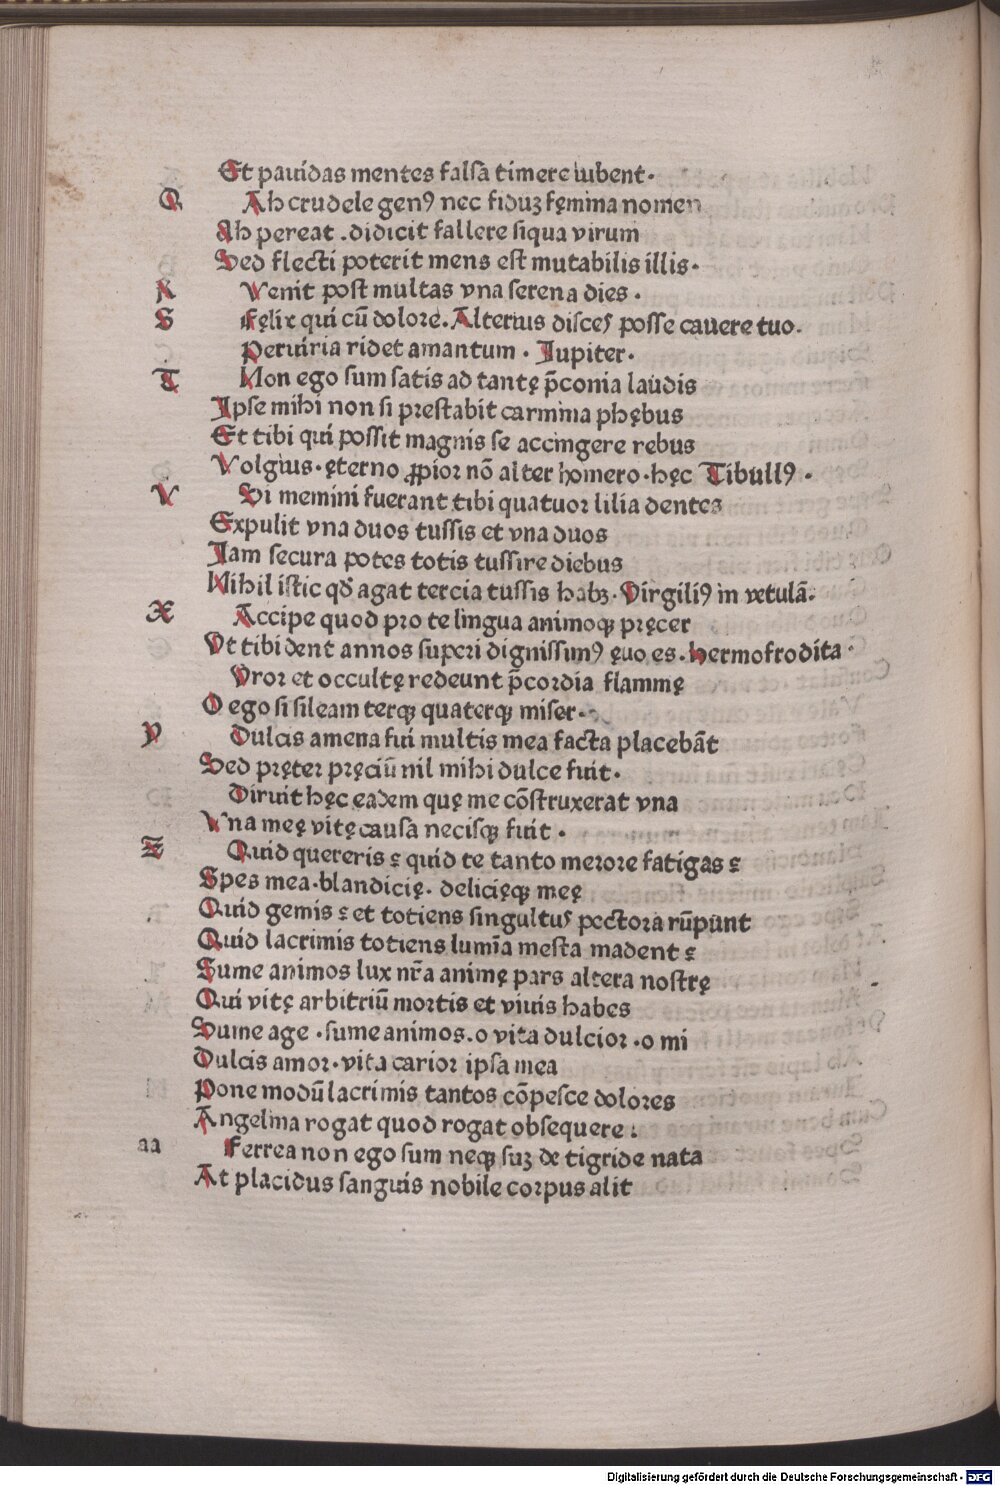 Et pauidas mentes falsa timere iubent·
Q Ah crudele genꝰ nec fiduꝫ fęmina nomen
Ah pereat .didicit fallere siqua virum
Sed flecti poterit mens est mutabilis illis·
R Venit post multas vna serena dies ·
S Fęlix qui cū dolore. Alterius disces posse cauere tuo.
Periuria ridet amantum · Iupiter·
T Non ego sum satis ad tantę p̄conia laudis
Ipse mihi non si prestabit carmina phębus
Et tibi qui possit magnis se accingere rebus
Volgius·ęterno ꝓpior nō alter homero·hęc Tibullꝰ ·
V Si memini fuerant tibi quatuor lilia dentes
Expulit vna duos tussis et vna duos
Iam secura potes totis tussire diebus
Nihil istic qd̄ agat tercia tussis habꝫ·Virgiliꝰ in vetulā·
X Accipe quod pro te lingua animoqꝫ pręcer
Vt tibi dent annos superi dignissimꝰ ęuo es·hermofrodita·
Vror et occultę redeunt p̄cordia flammę
O ego si sileam terqꝫ quaterqꝫ miser·
y Dulcis amena fui multis mea facta placebāt
Sed pręter pręciū nil mihi dulce fuit·
Diruit hęc eadem quę me cōstruxerat vna
Vna meę vitę causa necisqꝫ fuit ·
Z Quid quereris ? quid te tanto merore fatigas ?
Spes mea·blandicię· delicięqꝫ meę
Quid gemis ? et totiens singultus pectora rūpunt
Quid lacrimis totiens lumīa mesta madent ?
Sume animos lux nr̄a animę pars altera nostrę
Qui vitę arbitriū mortis et viuis habes
Sume age ·sume animos.o vita dulcior ·o mi
Dulcis amor·vita carior ipsa mea
Pone modū lacrimis tantos cōpesce dolores
Angelina rogat quod rogat obsequere :
aa Ferrea non ego sum neqꝫ suꝫ de tigride nata
At placidus sanguis nobile corpus alit
Digitalisierung gefördert durch die Deutsche Forschungsgemeinschaft · DFG